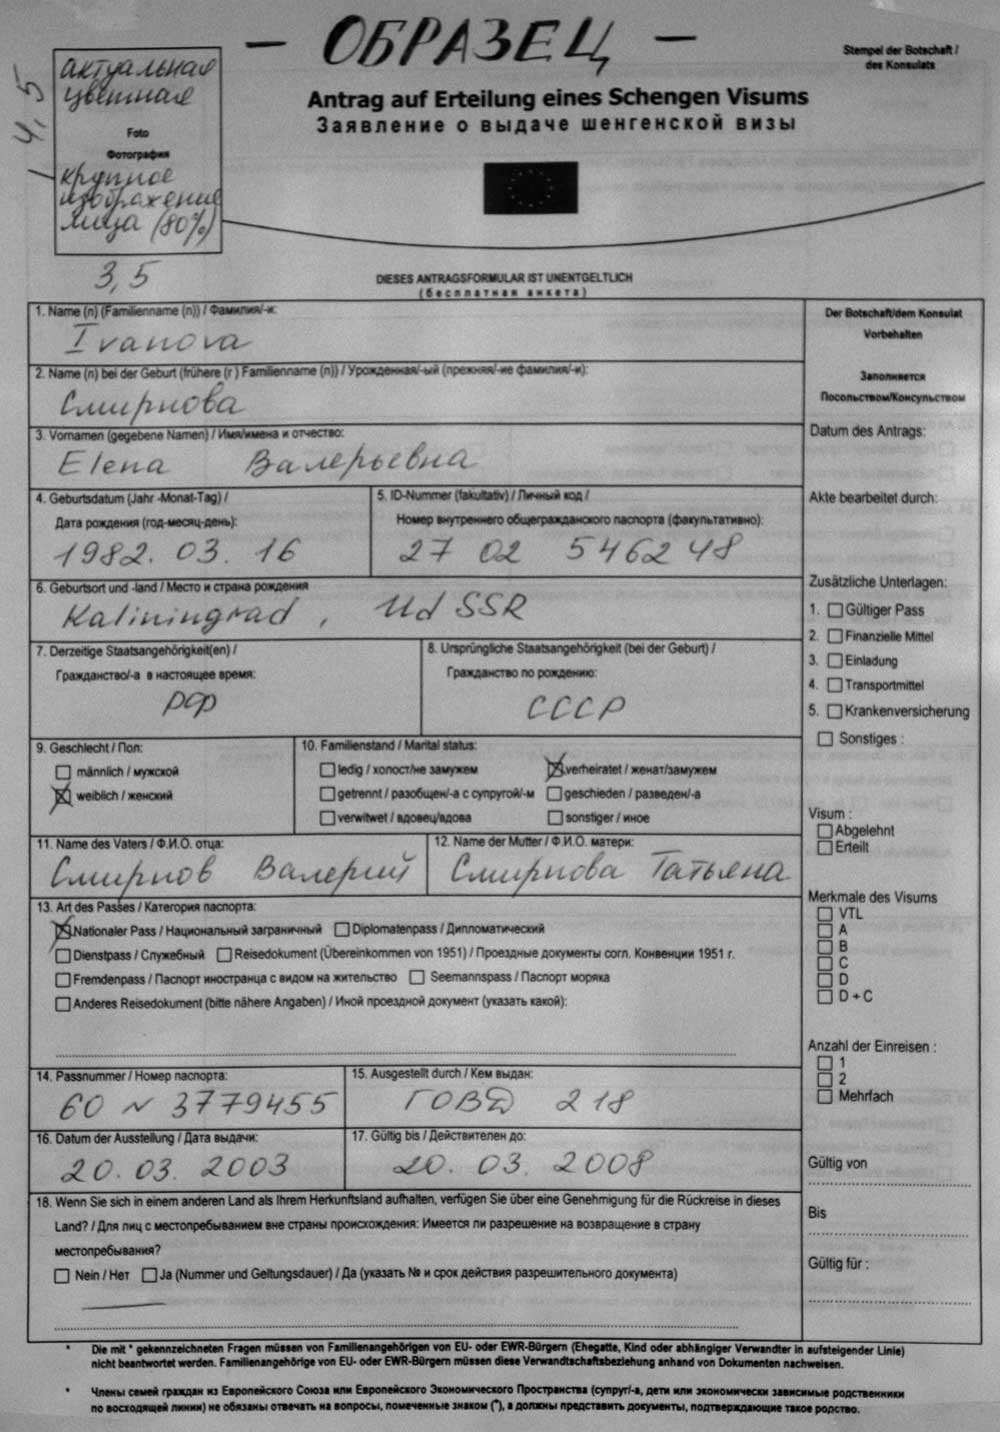 - ОБРАЗЕЦ -
Stempel der Botschaft /
des Konsulats
актуальная
цветная
Foto
Фотография
крупное
изображение
лица (80%)
4,5
3,5
Antrag auf Erteilung eines Schengen Visums
Заявление о выдаче шенгенской визы
DIESES ANTRAGSFORMULAR IST UNENTGELTLICH
(бесплатная анкета)
1. Name (n) (Familienname (n)) / Фамилия/-и:
Ivanova
2. Name (n) bei der Geburt (frühere (r ) Familienname (n)) / Урожденная/-ый (прежняя/-ие фамилия/-и):
Смирнова
3. Vornamen (gegebene Namen) / Имя/имена и отчество:
Elena Валерьевна
4. Geburtsdatum (Jahr -Monat-Tag) /
Дата рождения (год-месяц-день):
1982. 03. 16
5. ID-Nummer (fakultativ) / Личный код /
Номер внутреннего общегражданского паспорта (факультативно):
27 02 546248
6. Geburtsort und -land / Место и страна рождения
Kaliningrad, UdSSR
7. Derzeitige Staatsangehörigkeit(en) /
Гражданство/-а в настоящее время:
РФ
8. Ursprüngliche Staatsangehörigkeit (bei der Geburt) /
Гражданство по рождению:
СССР
9. Geschlecht / Пол:
männlich / мужской
weiblich / женский
10. Familienstand / Marital status:
ledig / холост/не замужем verheiratet / женат/замужем
getrennt / разобщен/-а с супругой/-м geschieden / разведен/-а
verwitwet / вдовец/вдова sonstiger / иное
11. Name des Vaters / Ф.И.О. отца:
Смирнов Валерий
12. Name der Mutter / Ф.И.О. матери:
Смирнова Татьяна
13. Art des Passes / Категория паспорта:
Nationaler Pass / Национальный заграничный Diplomatenpass / Дипломатический
Dienstpass / Служебный Reisedokument (Übereinkommen von 1951) / Проездные документы согл. Конвенции 1951 г.
Fremdenpass / Паспорт иностранца с видом на жительство Seemannspass / Паспорт моряка
Anderes Reisedokument (bitte nähere Angaben) / Иной проездной документ (указать какой):
14. Passnummer / Номер паспорта:
60 N 3779455
15. Ausgestellt durch / Кем выдан:
ГОВД 218
16. Datum der Ausstellung / Дата выдачи:
20. 03. 2003
17. Gültig bis / Действителен до:
20. 03. 2008
18. Wenn Sie sich in einem anderen Land als Ihrem Herkunftsland aufhalten, verfügen Sie über eine Genehmigung für die Rückreise in dieses
Land? / Для лиц с местопребыванием вне страны происхождения: Имеется ли разрешение на возвращение в страну
местопребывания?
Nein / Нет Ja (Nummer und Geltungsdauer) / Да (указать № и срок действия разрешительного документа)
Der Botschaft/dem Konsulat
Vorbehalten
Заполняется
Посольством/Консульством
Datum des Antrags:
Akte bearbeitet durch:
Zusätzliche Unterlagen:
1. Gültiger Pass
2. Finanzielle Mittel
3. Einladung
4. Transportmittel
5. Krankenversicherung
Sonstiges :
Visum :
Abgelehnt
Erteilt
Merkmale des Visums
VTL
A
B
C
D
D + C
Anzahl der Einreisen :
1
2
Mehrfach
Gültig von
Bis
Gültig für :
* Die mit * gekennzeichneten Fragen müssen von Familienangehörigen von EU- oder EWR-Bürgern (Ehegatte, Kind oder abhängiger Verwandter in aufsteigender Linie)
nicht beantwortet werden. Familienangehörige von EU- oder EWR-Bürgern müssen diese Verwandtschaftsbeziehung anhand von Dokumenten nachweisen.
* Члены семей граждан из Европейского Союза или Европейского Экономического Пространства (супруг/-а, дети или экономически зависимые родственники
по восходящей линии) не обязаны отвечать на вопросы, помеченные знаком (*), а должны представить документы, подтверждающие такое родство.